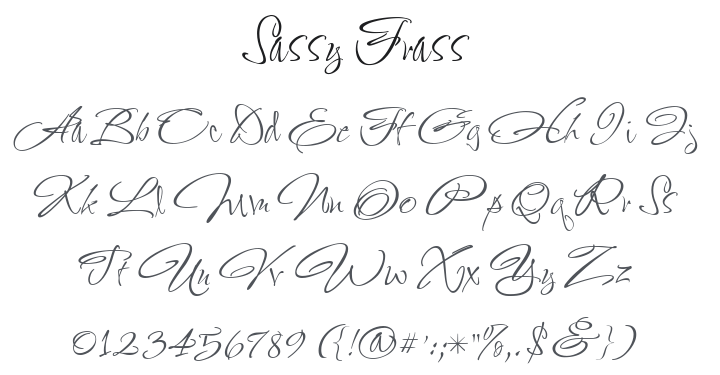 Sassy Frass
Aa Bb Cc Dd Ee Ff Gg Hh Ii Jj
Kk Ll Mm Nn Oo Pp Qq Rr Ss
Tt Uu Vv Ww Xx Yy Zz
0123456789 ({!@#':;*"%,.$&})